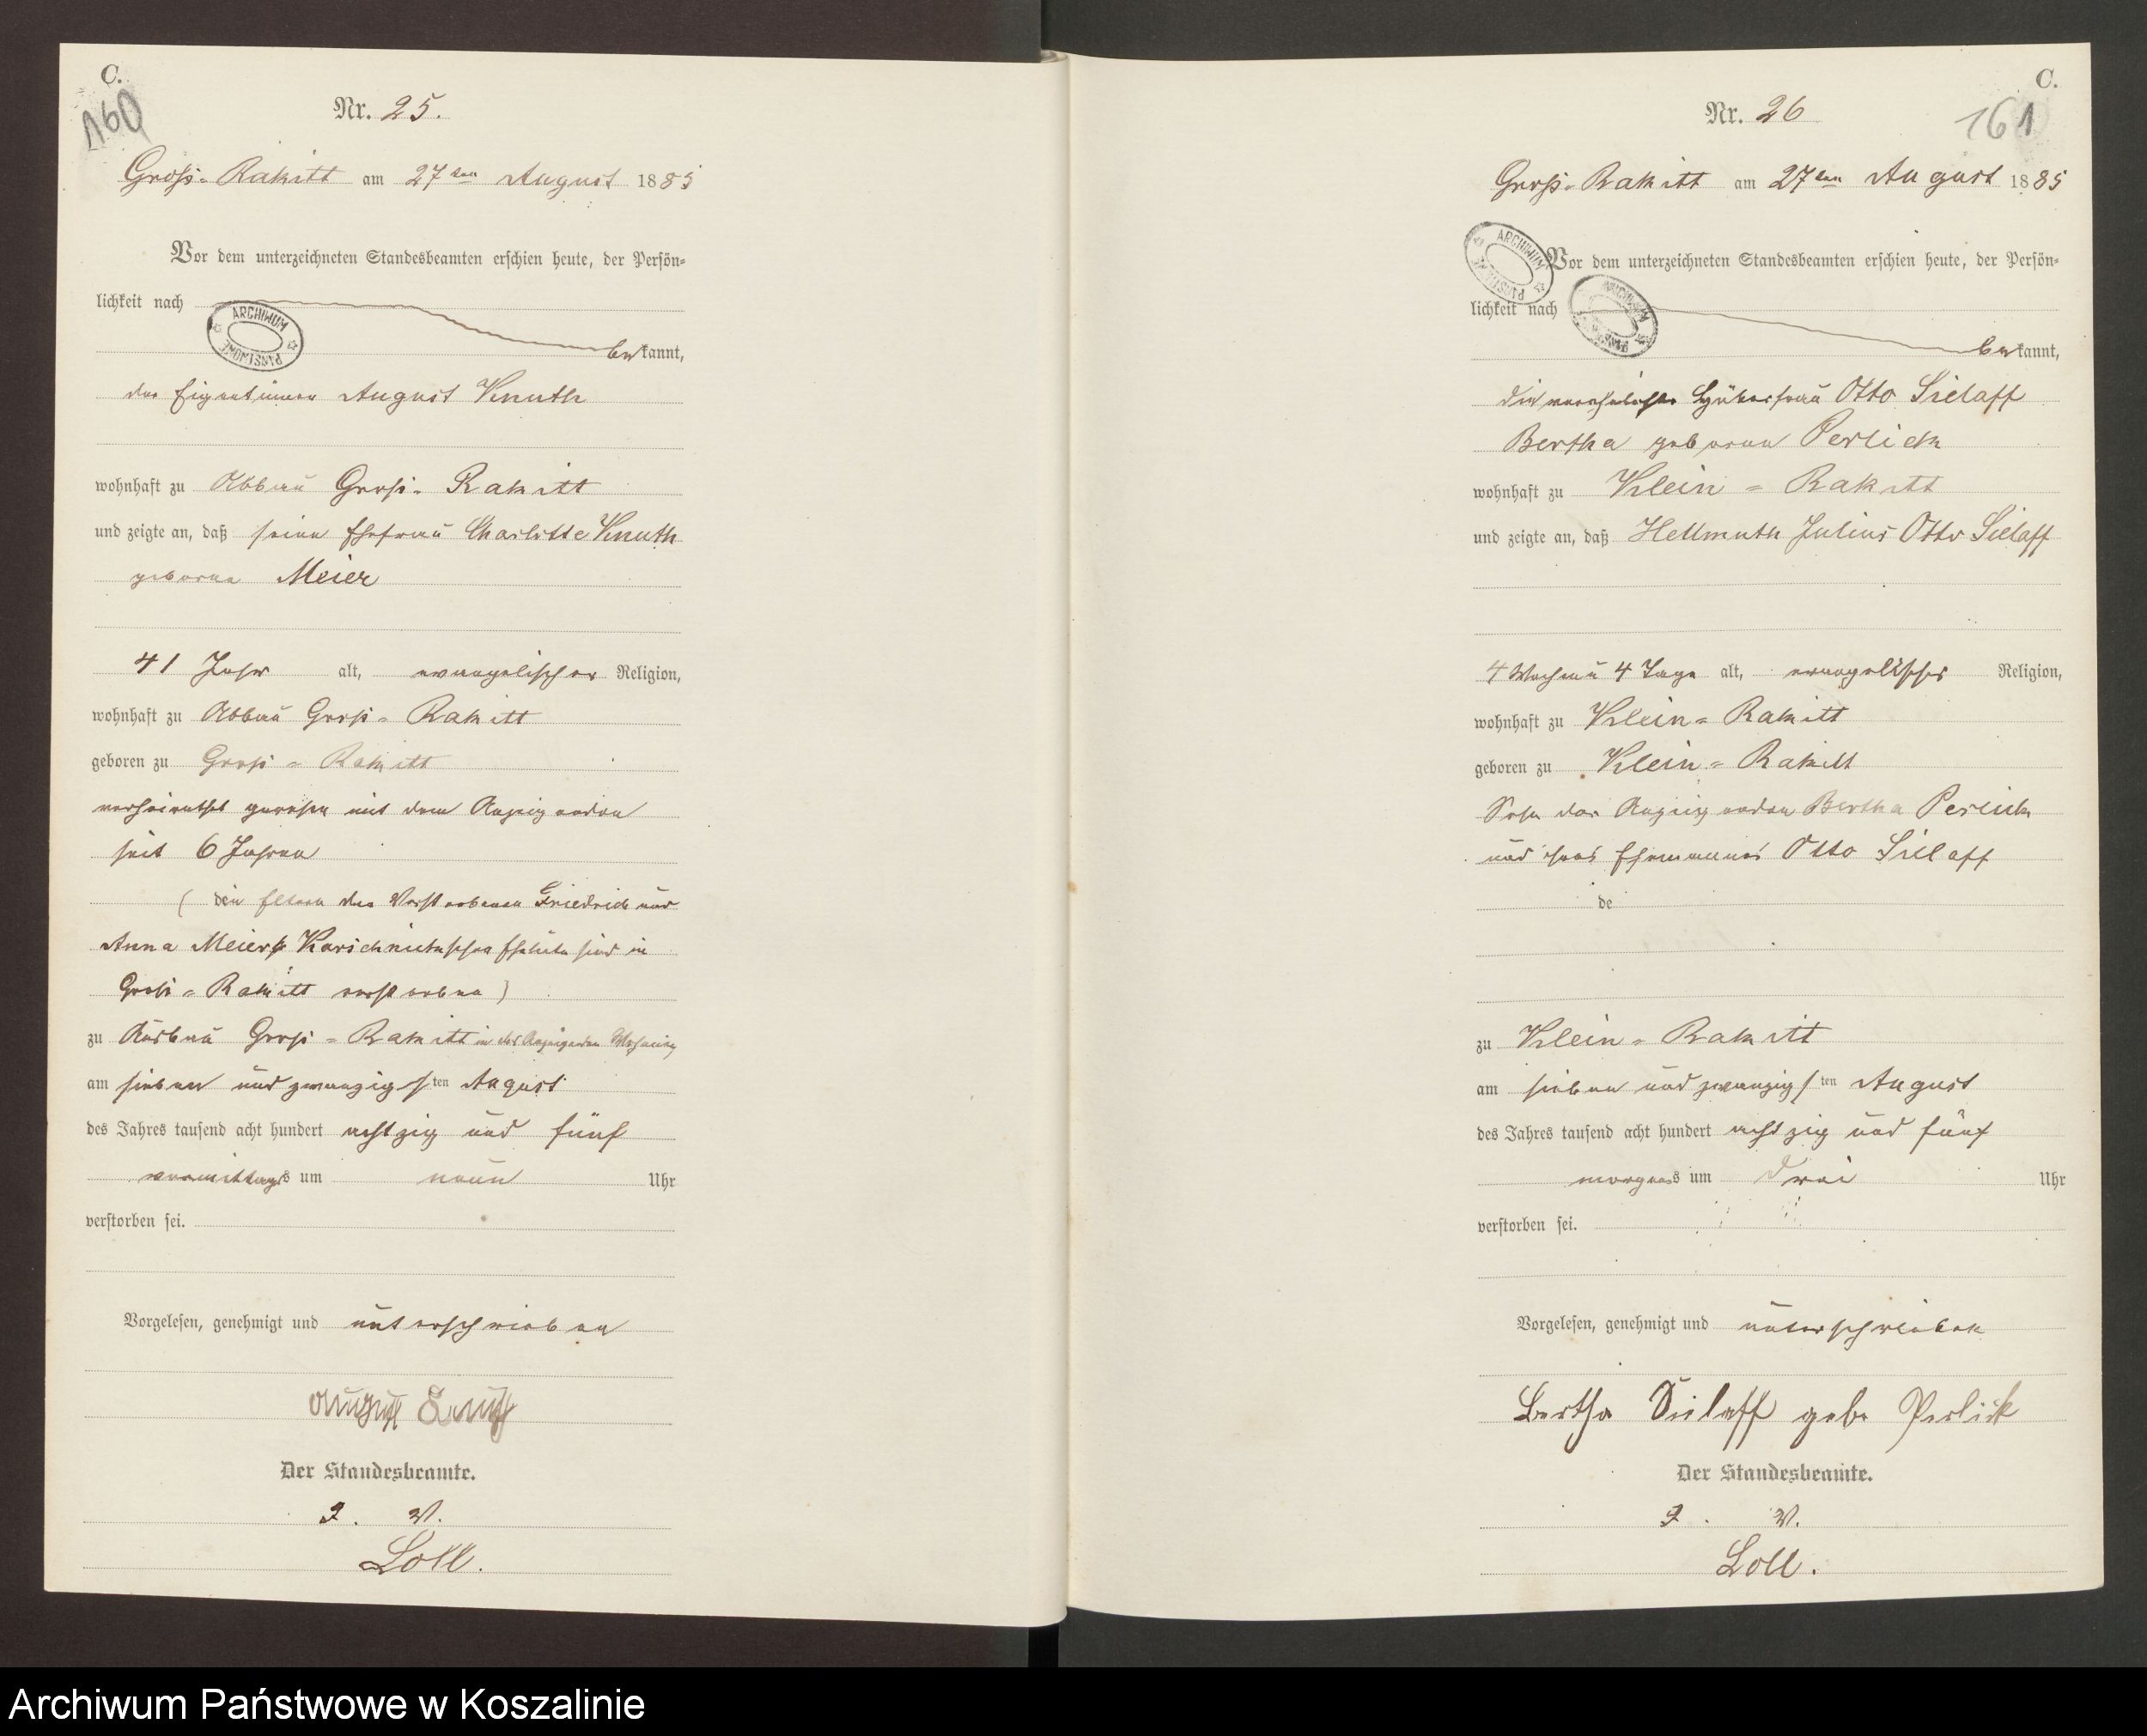 C.
160
Nr. 25.
Groß-Rakitt am 27ten August 1885
Vor dem unterzeichneten Standesbeamten erschien heute, der Persön-
lichkeit nach
ARCHIWUM PAŃSTWOWE
bekannt,
der Eigentümer August Knuth
wohnhaft zu Abbau Groß-Rakitt
und zeigte an, daß seine Ehefrau Charlotte Knuth
geborne Meier
41 Jahr alt, evangelischer Religion,
wohnhaft zu Abbau Groß-Rakitt
geboren zu Groß-Rakitt
verheirathet gewesen mit dem Anzeigenden
seit 6 Jahren
(die Eltern der Verstorbenen Friedrich und
Anna Meier Eheleute sind in
Groß-Rakitt verstorben)
zu Groß-Rakitt in des Anzeigenden Wohnung
am sieben und zwanzigsten August
des Jahres tausend acht hundert achtzig und fünf
vormittags um neun Uhr
verstorben sei.
Vorgelesen, genehmigt und unterschrieben
August Knuth
Der Standesbeamte.
I. V.
Loll.
C.
161
Nr. 26
Groß-Rakitt am 27ten August 1885
ARCHIWUM PAŃSTWOWE
Vor dem unterzeichneten Standesbeamten erschien heute, der Persön-
lichkeit nach
ARCHIWUM PAŃSTWOWE
bekannt,
die verehelichte Otto Sielaff
Bertha geborne Perlick
wohnhaft zu Klein-Rakitt
und zeigte an, daß Hellmuth Julius Otto Sielaff
4 Wochen 4 Tage alt, evangelischer Religion,
wohnhaft zu Klein-Rakitt
geboren zu Klein-Rakitt
Sohn der Anzeigenden Bertha Perlick
und ihres Ehemannes Otto Sielaff
de
zu Klein-Rakitt
am sieben und zwanzigsten August
des Jahres tausend acht hundert achtzig und fünf
morgens um drei Uhr
verstorben sei.
Vorgelesen, genehmigt und unterschrieben
Bertha Sielaff geb. Perlick
Der Standesbeamte.
I. V.
Loll.
Archiwum Państwowe w Koszalinie